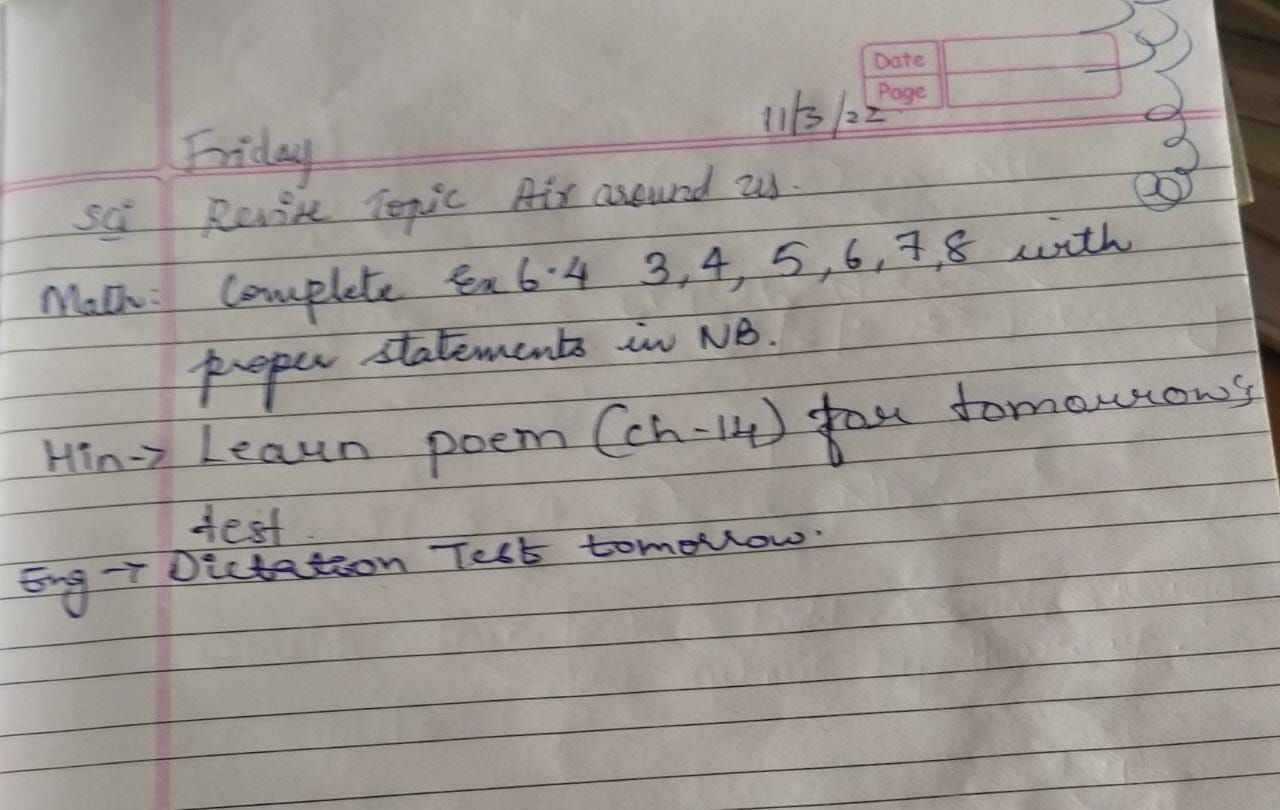 Date
Page
11/3/22
Friday
Sci Revise Topic Air around us.
Math: Complete Ex 6.4 3, 4, 5, 6, 7, 8 with
proper statements in NB.
Hin→ Learn poem (ch-14) for tomorrow's
test.
Eng→ Dictation Test tomorrow.